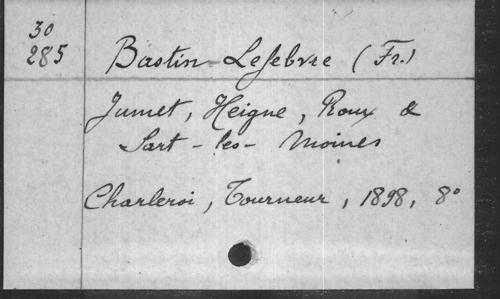 30
285
Bastin-Lefebvre (Fr.)
Jumet, Heigne, Roux &
Sart-les-Moines
Charleroi, Tourneur, 1898, 8°